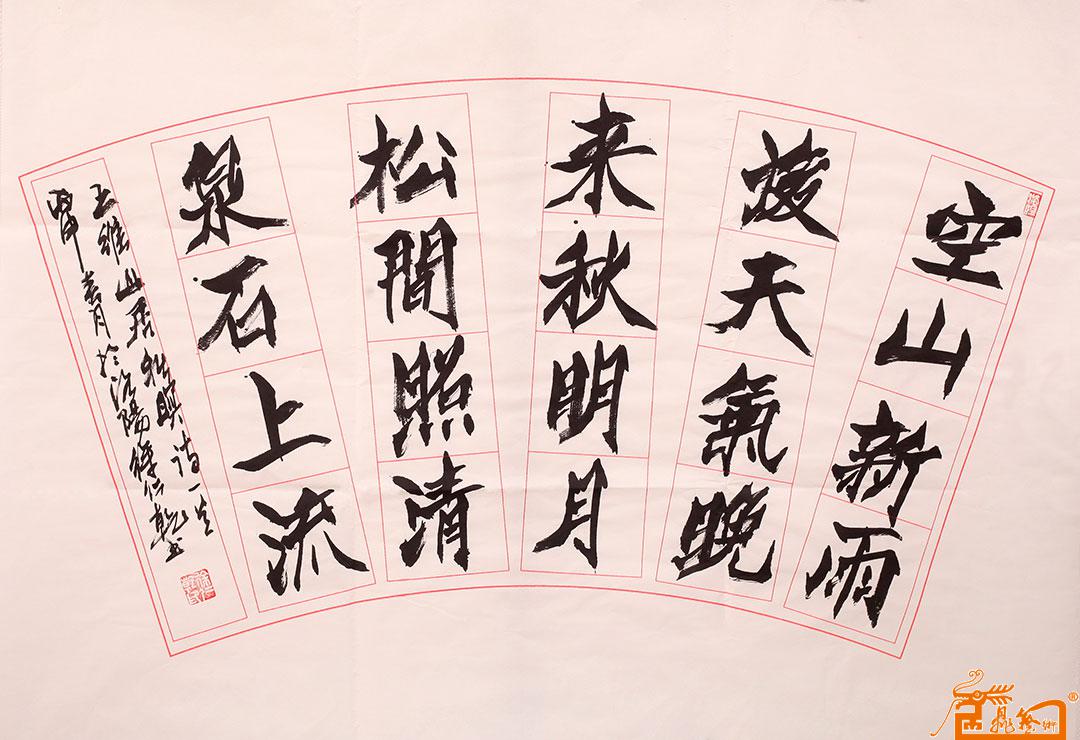 空山新雨
後天氣晚
来秋明月
松間照清
泉石上流
王維山居秋暝诗一首
春月於沈陽徐仁乾书